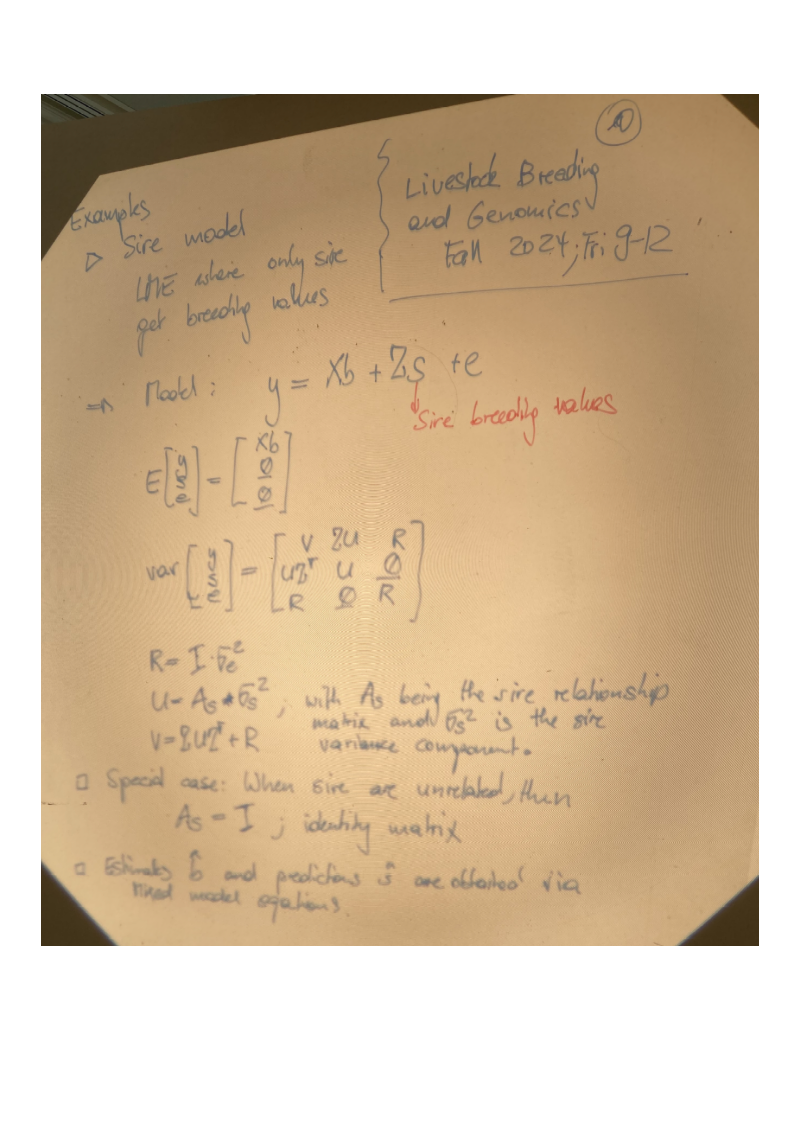 Livestock Breeding
and Genomics
Fall 2024; Fri 9-12
Examples
▷ Sire model
LME where only sire
get breeding values
⇒ Model: y = Xb + Zs + e
Sire breeding values
E[y s e] = [Xb 0 0]
var[y s e] = [V ZU R
UZᵀ U 0
R 0 R]
R = I·σe²
U = As * σs², with As being the sire relationship
matrix and σs² is the sire
V = ZUZᵀ + R variance component.
□ Special case: When sire are unrelated, then
As = I ; identity matrix
□ Estimates b̂ and predictions ŝ are obtained via
Mixed model equations.